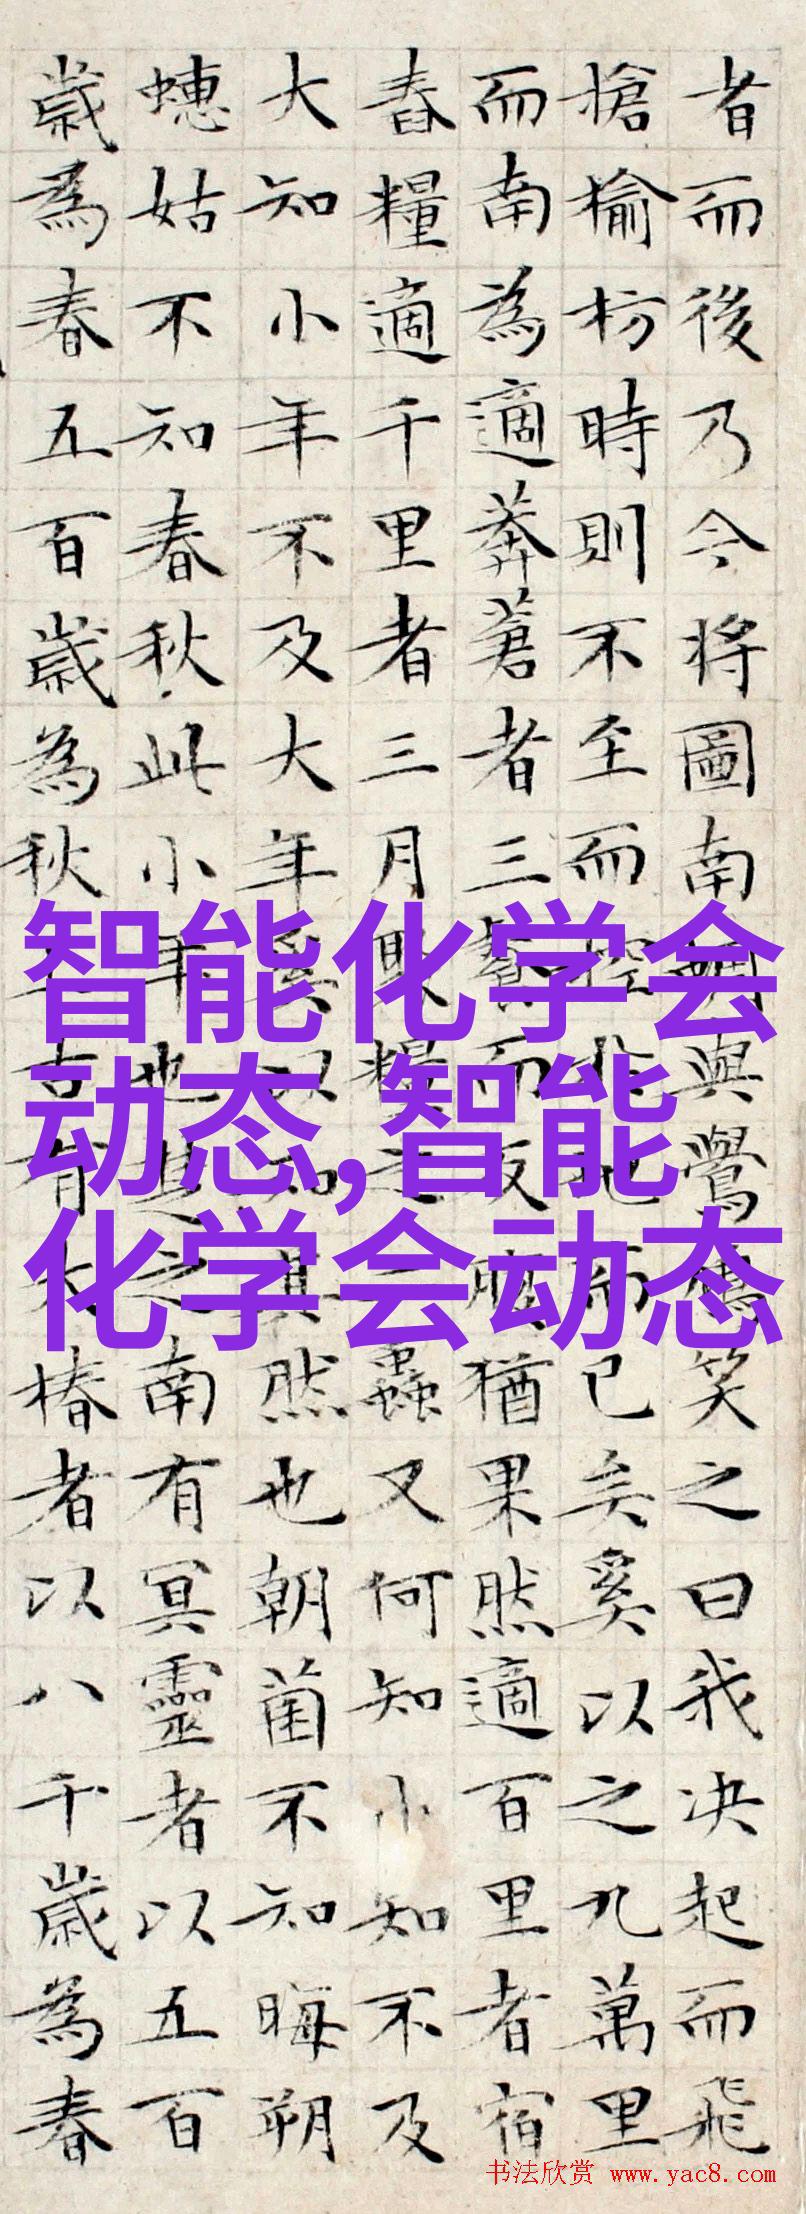 者而後乃今将圖南蜩與鷽鳩笑之曰我决起而飛
搶榆枋時則不至而控於地而已矣奚以之九萬里
而南為適莽蒼者三餐而反腹猶果然適百里者宿
舂糧適千里者三月聚糧之二蟲又何知小知不及
大知小年不及大年奚以知其然也朝菌不知晦朔
蟪姑不知春秋此小年也楚之南有冥靈者以五百
歲為春五百歲為秋上古有大椿者以八千歲為春
智能化学会
动态,智能
化学会动态
书法欣赏 www.yac8.com